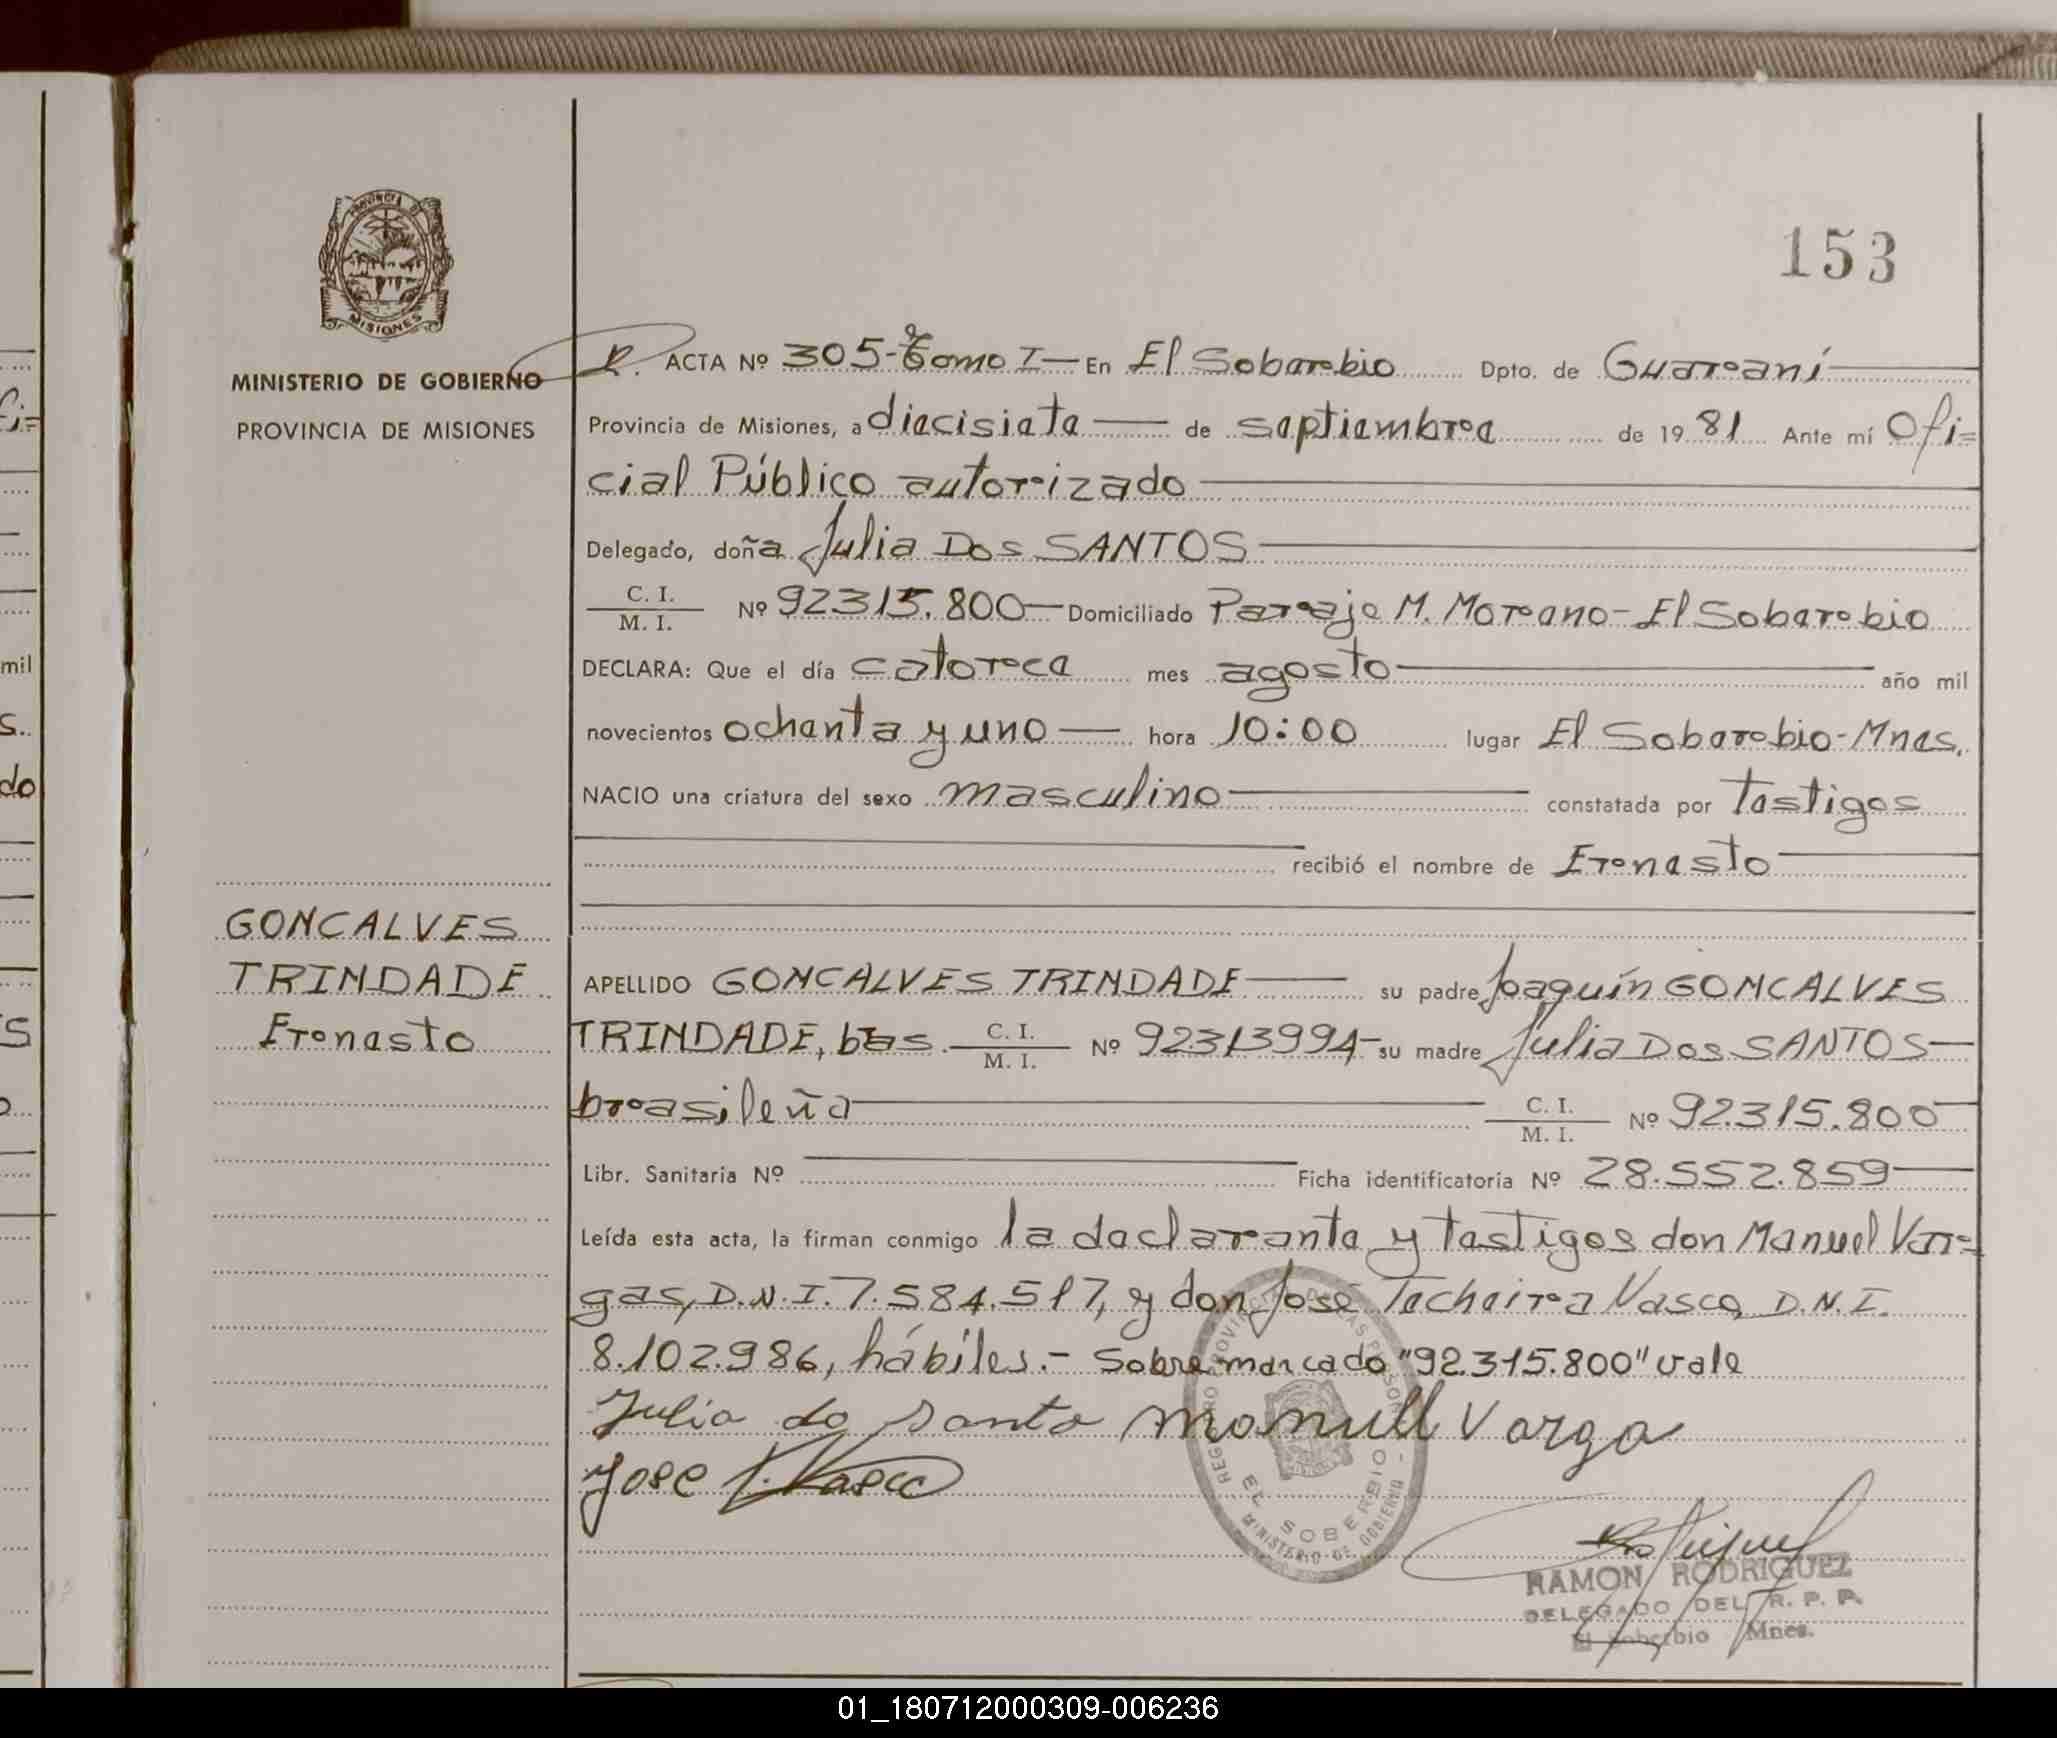 153
PROVINCIA DE
MISIONES
MINISTERIO DE GOBIERNO
PROVINCIA DE MISIONES
R. ACTA Nº 305-Tomo I- En El Soberbio Dpto. de Guaraní
Provincia de Misiones, a diecisiete de septiembre de 19 81 Ante mí Ofi=
cial Público autorizado
Delegado, doña Julia Dos SANTOS
C. I.
M. I. Nº 92.315.800- Domiciliado Paraje M. Moreano-El Soberbio
DECLARA: Que el día catorce mes agosto año mil
novecientos ochenta y uno hora 10:00 lugar El Soberbio-Mnes.
NACIO una criatura del sexo masculino constatada por testigos
recibió el nombre de Ernesto
GONCALVES
TRINDADE
Ernesto
APELLIDO GONCALVES TRINDADE su padre Joaquín GONCALVES
TRINDADE, bras. C. I.
M. I. Nº 92313994- su madre Julia Dos SANTOS
brasileña C. I.
M. I. Nº 92.315.800
Libr. Sanitaria Nº Ficha identificatoria Nº 28.552.859
Leída esta acta, la firman conmigo la declarante y testigos don Manuel Var=
gas, D.N.I. 7.584.517, y don José Techeira Vasco, D.N.I.
8.102.986, hábiles.- Sobremarcado "92.315.800" vale
Julia do santo Manuell Varga
Jose T. Vasco
EL SOBERBIO
MINISTERIO DE GOBIERNO
RAMON RODRIGUEZ
DELEGADO DEL R. P. P.
El Soberbio Mnes.
mil
s.
do
01_180712000309-006236